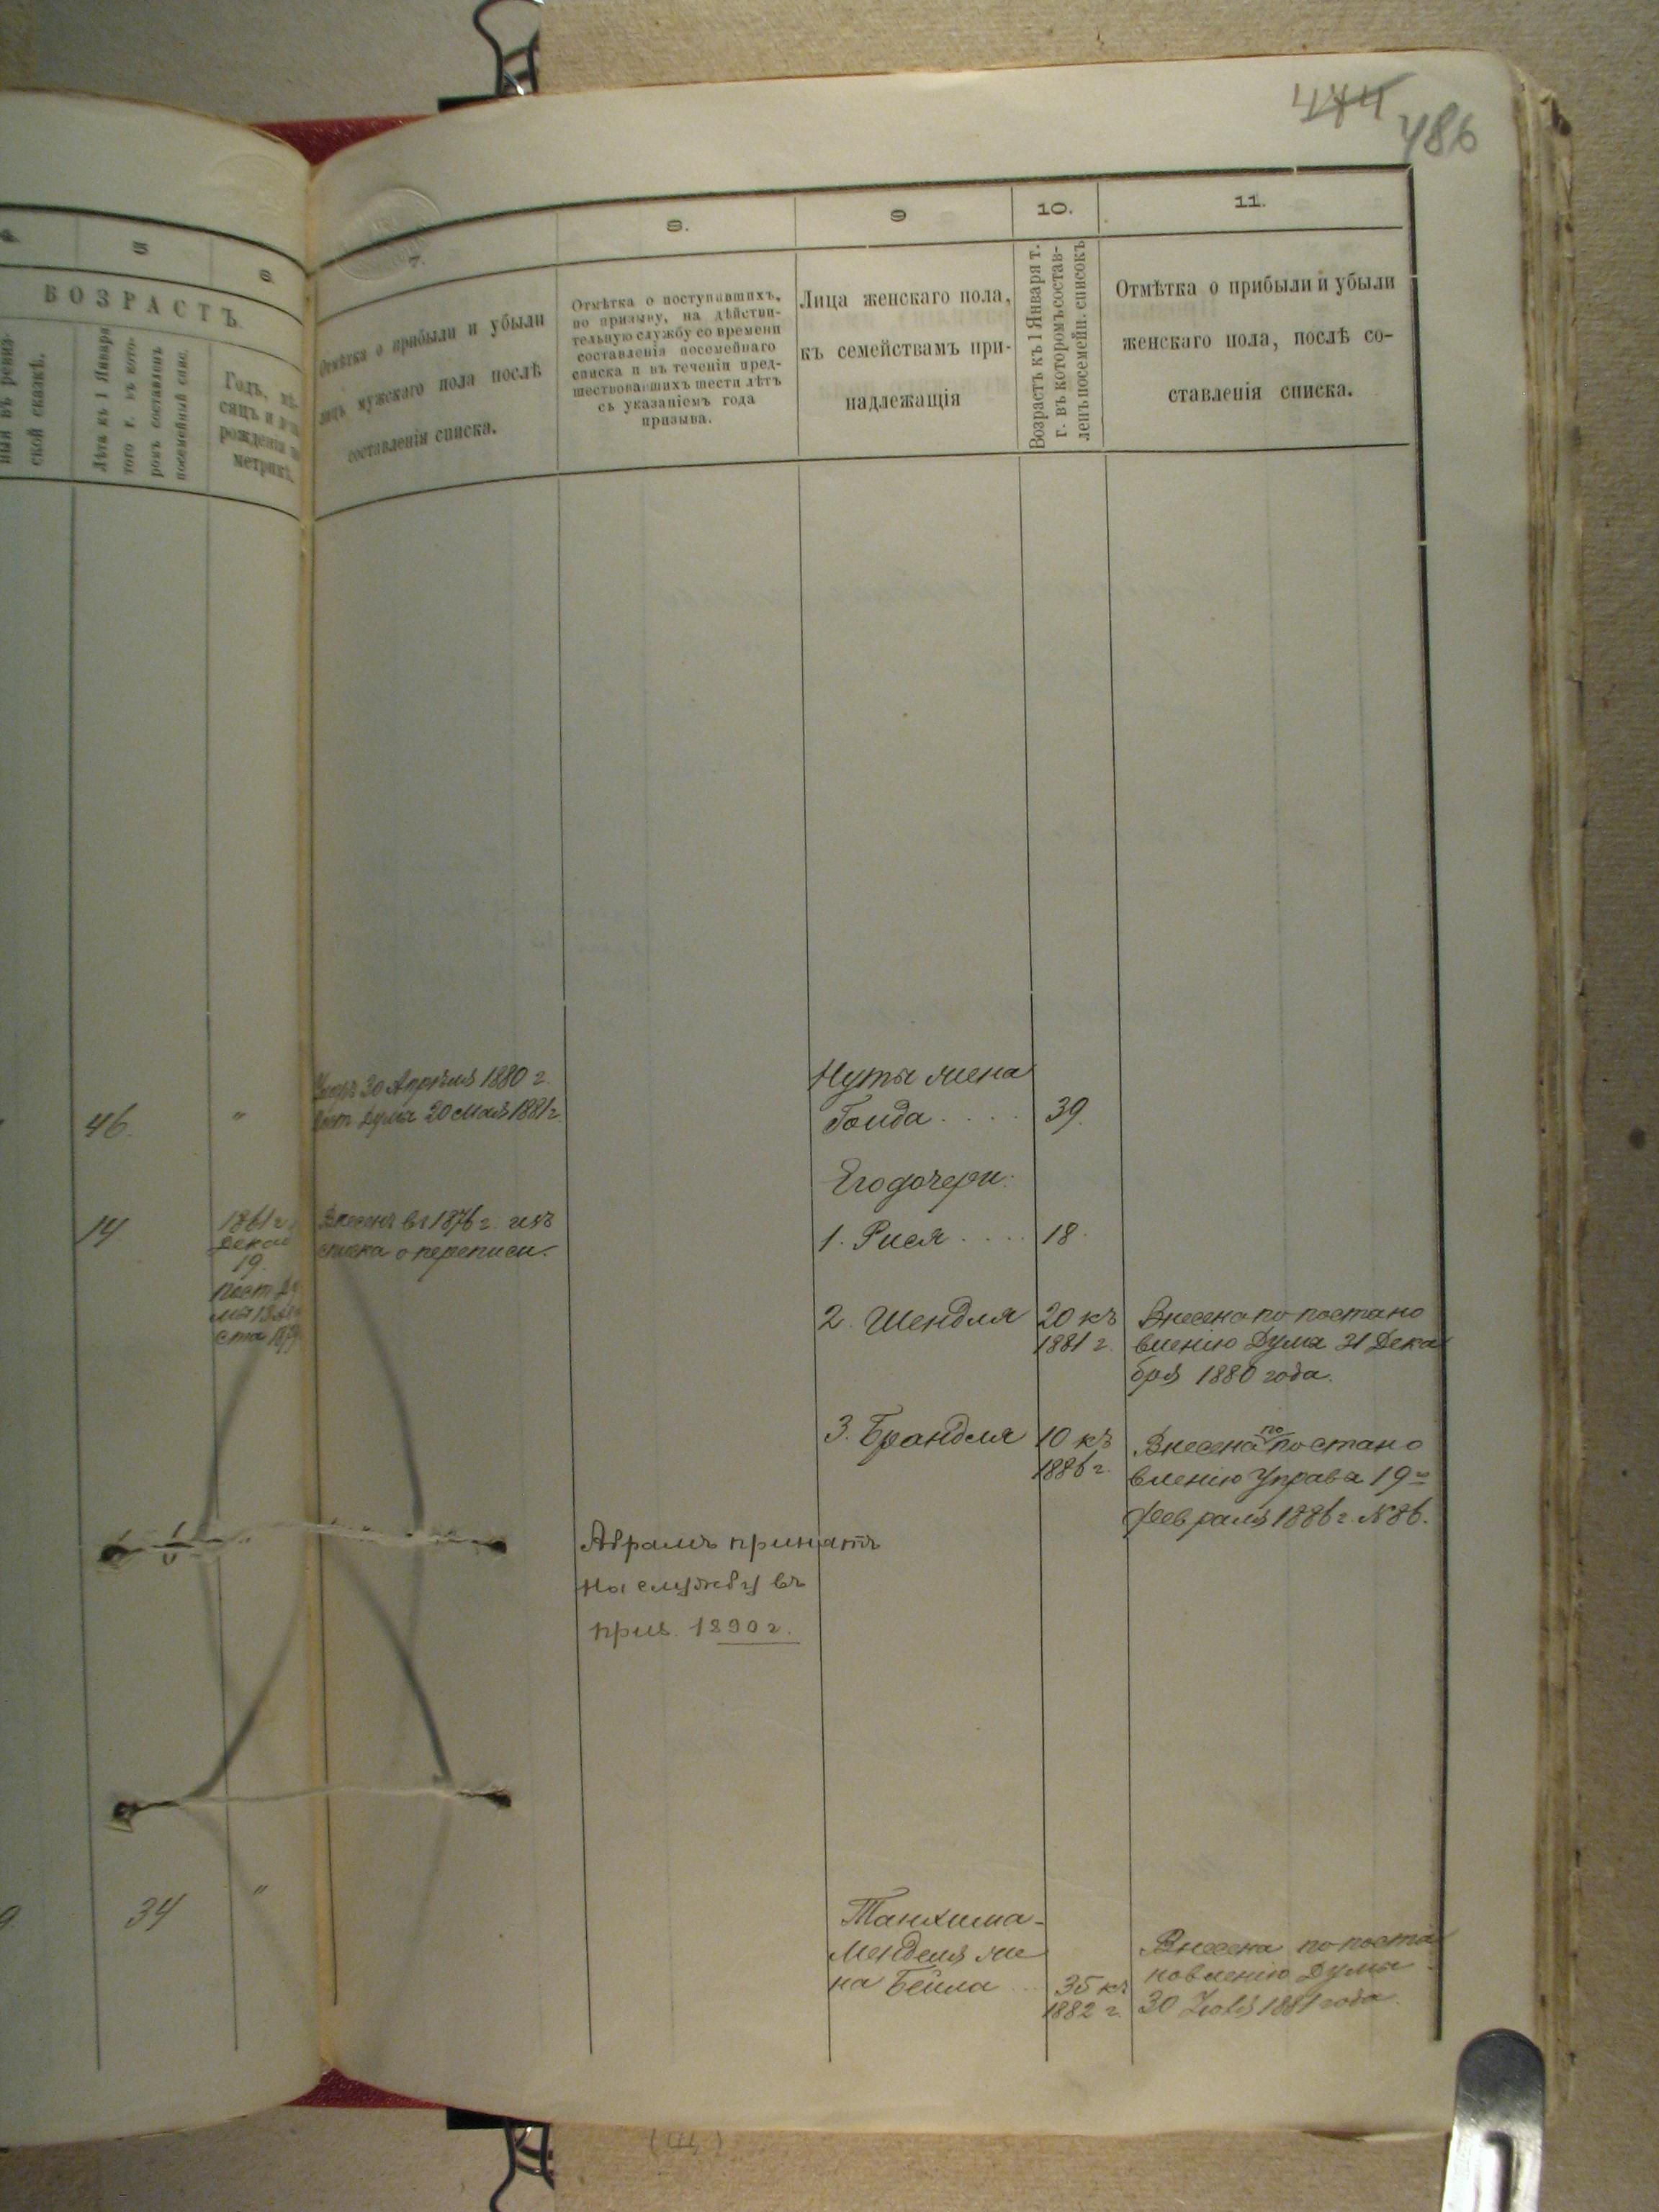 474
486
4.
5
6.
7.
8.
9
10.
11.
ВОЗРАСТЪ
ской сказкѣ.
Лѣта къ 1 Января
того г. въ кото-
ромъ составленъ
посемейный спис.
Годъ, мѣ-
сяцъ и день
рожденія по
метрикѣ.
Отмѣтка о прибыли и убыли
лицъ мужскаго пола послѣ
составленія списка.
Отмѣтка о поступившихъ,
по призыву, на дѣйстви-
тельную службу со времени
составленія посемейнаго
списка и въ теченіи пред-
шествовавшихъ шести лѣтъ
съ указаніемъ года
призыва.
Лица женскаго пола,
къ семействамъ при-
надлежащія
Возрастъ къ 1 Января т.
г. въ которомъ состав-
ленъ посемейн. списокъ
Отмѣтка о прибыли и убыли
женскаго пола, послѣ со-
ставленія списка.
46.
"
30 Апрѣля 1880 г.
Пост Думы 20 Мая 1881 г.
Нуты жена
Гольда . . . . 39.
Его дочери:
14
1861 г.
Декаб
19.
пост Ду
мы 13 Ав
ста 1879
Внесенъ въ 1876 г. изъ
списка о переписи.
1. Рися . . . . 18.
2. Шендля
20 къ
1881 г.
Внесена по постано
вленію Думы 31 Дека
бря 1880 года.
3. Брандля
10 къ
1886 г.
Внесена по постано
вленію Управы 19го
февраля 1886 г. № 86.
Абрамъ принятъ
на службу въ
приз. 1890 г.
34
"
Танхима-
Менделя же
на Бейла ...
35 къ
1882 г.
Внесена по поста
новленію Думы
30 Іюля 1881 года.